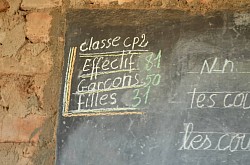 classe cp2
Effectif 81
Garçons 50
filles 31
les cou
les cou